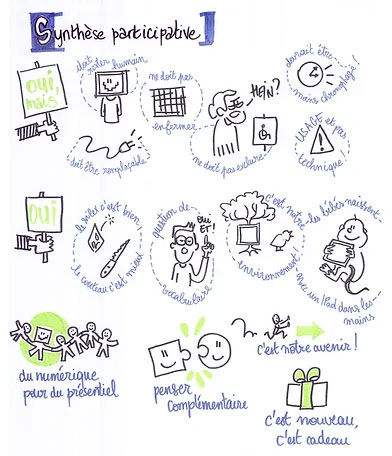 Synthèse participative
OUI, mais
doit rester humain
ne doit pas
enfermer
HEIN?
ne doit pas exclure
doit être remplaçable
devrait être
moins chronophage!
USAGE et pas
technique!
OUI
le soleil c'est bien,
le couteau c'est mieux
question de
vocabulaire
OUI
ET!
c'est notre
environnement
les bébés naissent
avec un iPad dans les
mains
du numérique
pour du présentiel
penser
complémentaire
c'est notre avenir!
c'est nouveau,
c'est cadeau